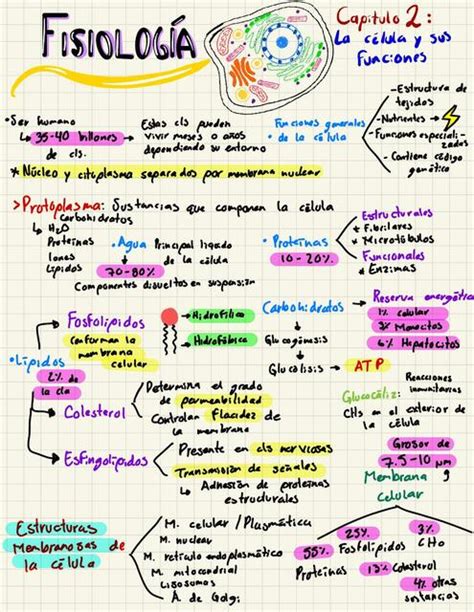 FISIOLOGÍA
Capitulo 2:
La célula y sus
Funciones
•Ser humano
↳ 35-40 billones
de cls.
Estas cls pueden
vivir meses o años
dependiendo su entorno
Funciones generales
• de la célula
-Estructura de
tejidos
-Nutrientes →
-Funciones especiali-
zadas
-Contiene código
genético
* Núcleo y citoplasma separados por membrana nuclear
>Protoplasma: Sustancias que componen la célula
Carbohidratos
↳ H2O
Proteínas
Iones
Lípidos
•Agua
Principal líquido
de la célula
70-80%
Componentes disueltos en suspensión
•Proteínas
10-20%
Estructurales
* Fibrilares
* Microtúbulos
Funcionales
* Enzimas
•Lípidos
2% de
la cla
Fosfolípidos
conforman la
membrana
celular
→ Hidrofílica
→ Hidrofóbica
Carbohidratos →
Glucogénesis
Glucólisis → ATP
Reserva energética
1% celular
3% Monocitos
6% Hepatocitos
Colesterol
Determina el grado
de permeabilidad
Controlan Flacidez de
la membrana
Glucocáliz:
Reacciones
inmunitarias
CHs en el exterior de
la célula
Esfingolípidos
Presente en cls nerviosas
Transmisión de señales
↳ Adhesión de proteínas
estructurales
Grosor de
7.5-10 µm
Membrana
celular
55%
Proteínas
25%
Fosfolípidos
13% Colesterol
3%
CHO
4% otras
sustancias
Estructuras
Membranosas de
la célula
M. celular / Plasmática
M. nuclear
M. retículo endoplasmático
M. mitocondrial
Lisosomas
A. de Golgi